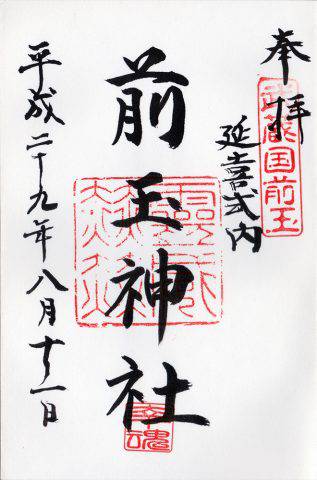 奉拝
武蔵国前玉
延喜式内
前玉神社
幸魂
平成二十九年八月十一日